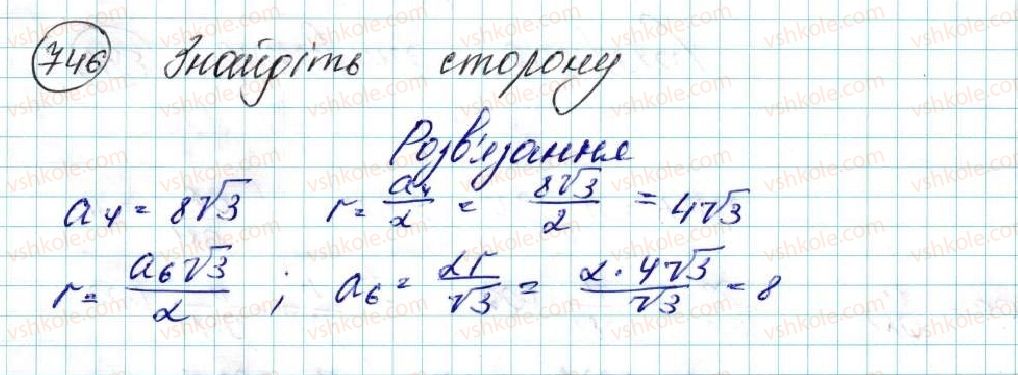 746 Знайдіть сторону
Розв'язання
a₄ = 8√3 r = a₄/2 = 8√3/2 = 4√3
r = a₆√3/2 ; a₆ = 2r/√3 = 2·4√3/√3 = 8
vshkole.com